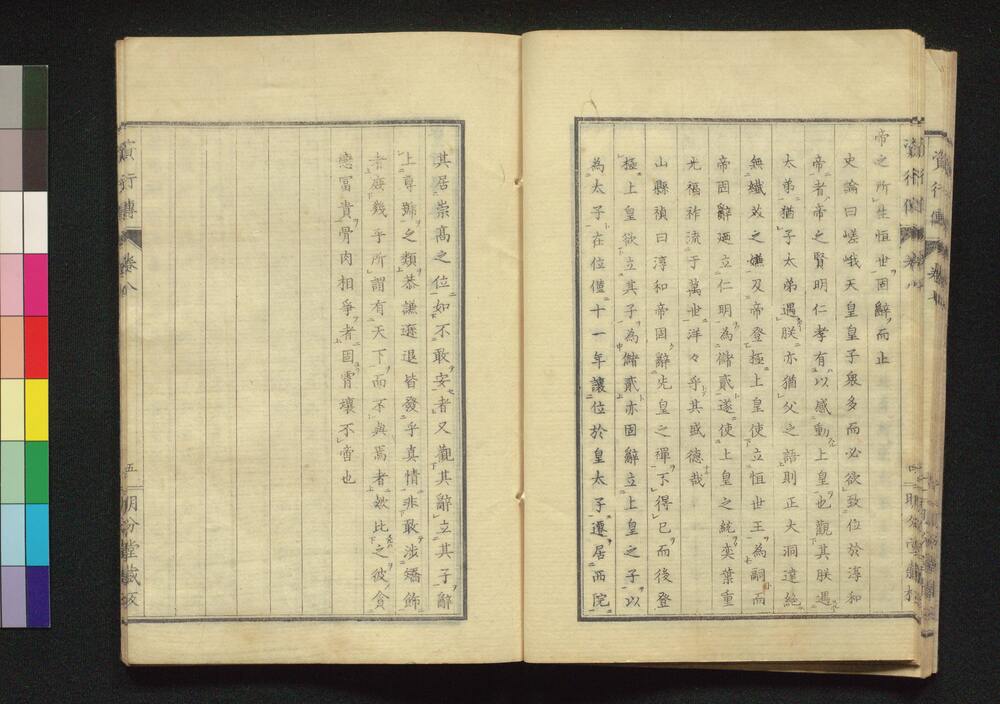 帝之所生恒世固辭而止
史論曰嵯峨天皇皇子衆多而必欲致位於淳和
帝者帝之賢明仁孝有以感動上皇也觀其朕遇
太弟猶子太弟遇朕亦猶父之語則正大洞達絶
無纖芥之嫌及帝登極上皇使立恒世王為嗣而
帝固辭廼立仁明為儲貳遂使上皇之統奕葉重
光福祚流于萬世洋々乎其盛德哉
山縣禎曰淳和帝固辭先皇之禪不得已而後登
極上皇欲立其子為儲貳亦固辭立上皇之子以
為太子在位僅十一年讓位於皇太子遷居西院
其居崇高之位如不敢安者又觀其辭立其子辭
上尊號之類恭謙遜退皆發乎真情非敢涉矯飾
者庶幾乎所謂有天下而不與焉者歟比之彼貪
戀冨貴骨肉相爭者固霄壤不啻也
資行傳
卷八
五
明分堂藏板